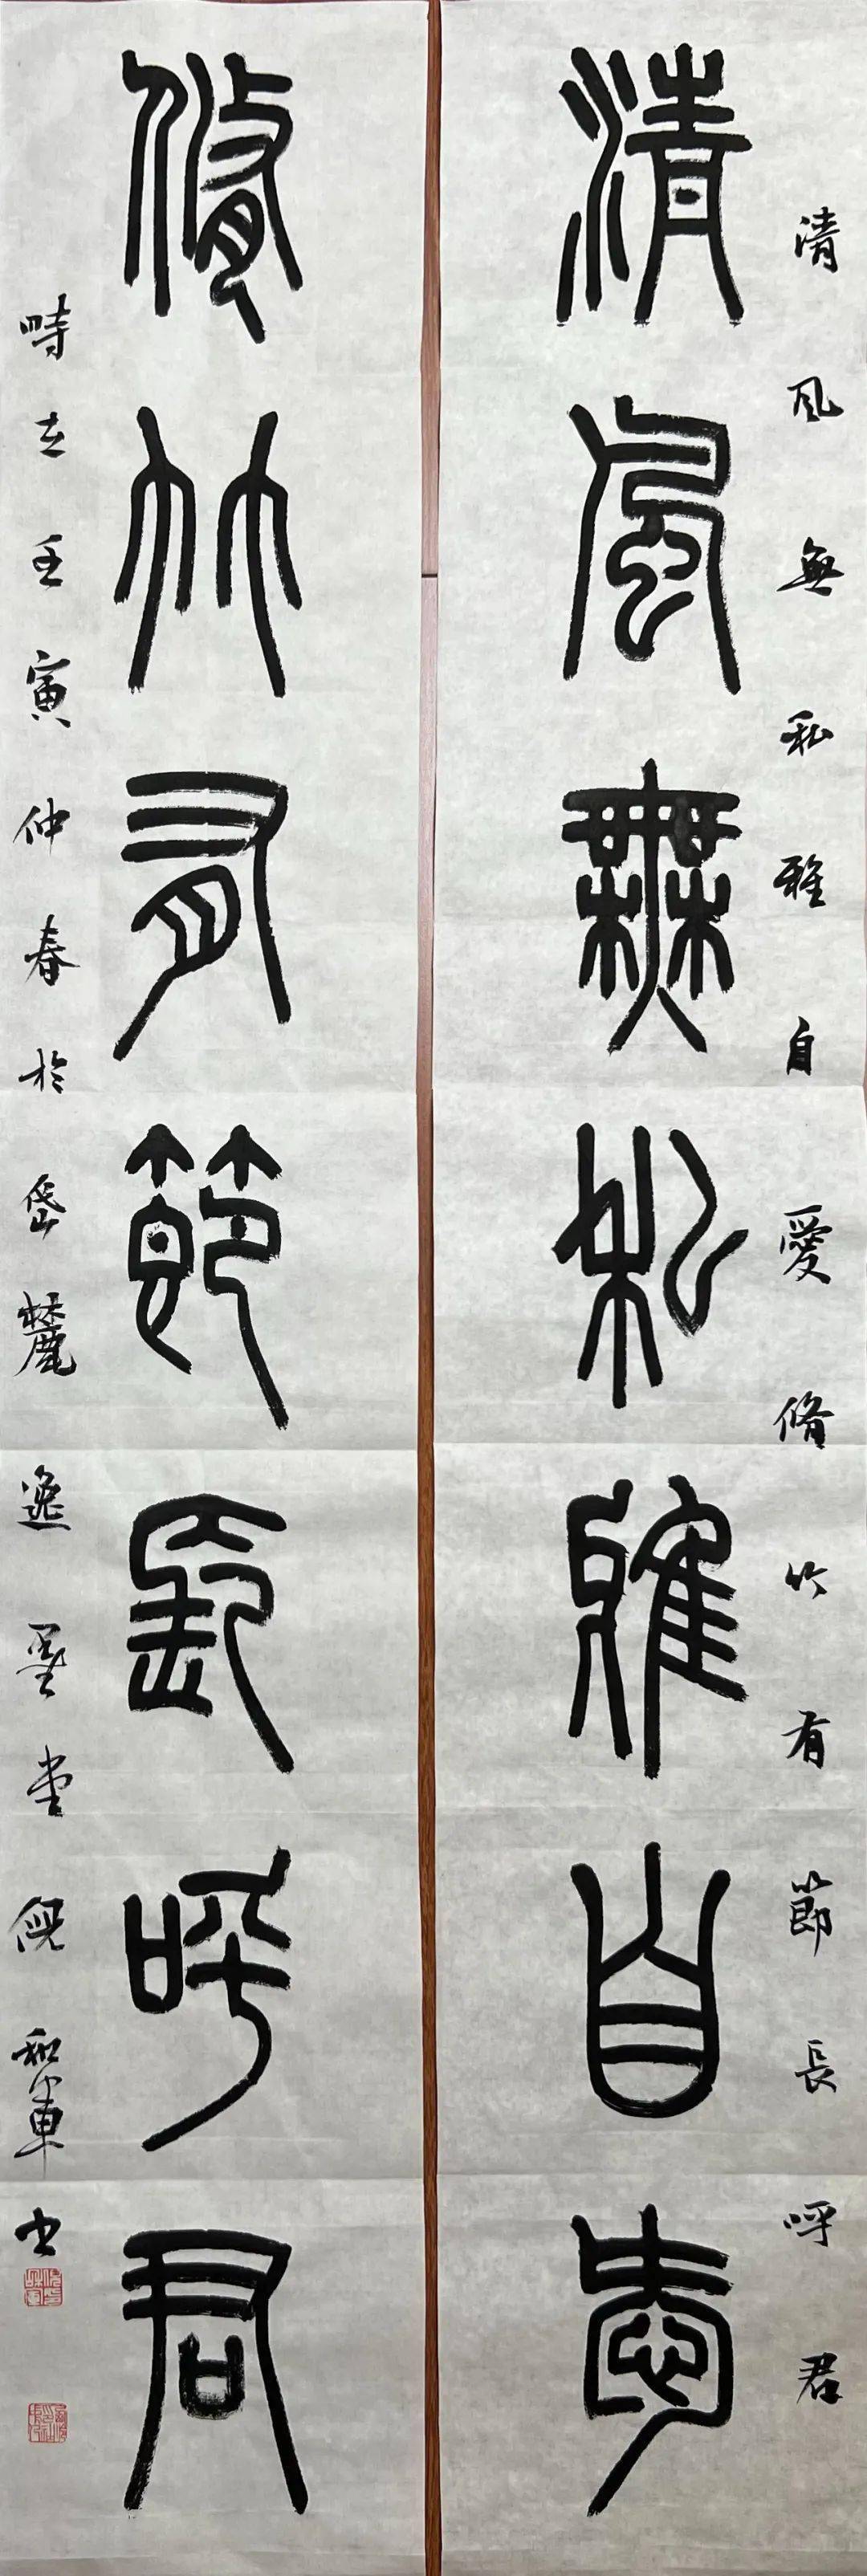 清風無私雅自愛
清風無私雅自愛脩竹有節長呼君
脩竹有節長呼君
時在壬寅仲春於岱麓逸墨堂倪和軍书